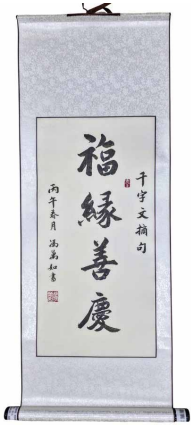 千字文摘句
福緣善慶
丙午春月 馮萬如書